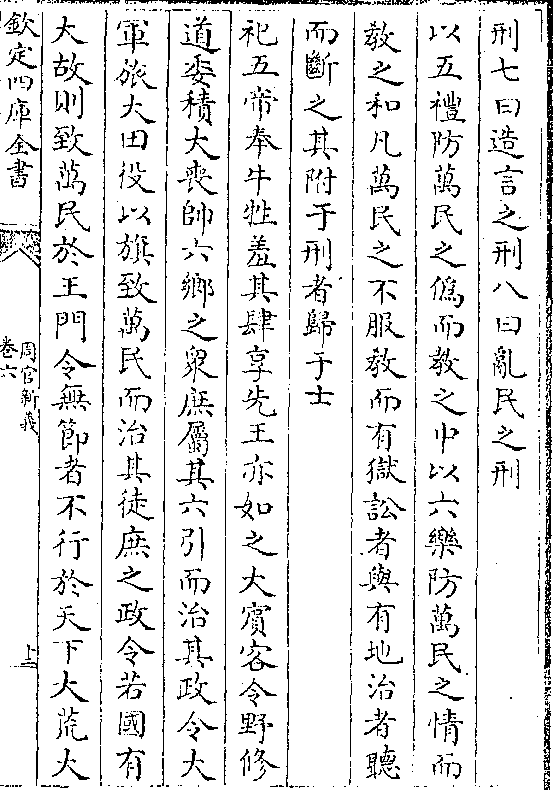 刑七曰造言之刑八曰亂民之刑
以五禮防萬民之僞而教之中以六樂防萬民之情而
教之和凡萬民之不服教而有獄訟者與有地治者聽
而斷之其附于刑者歸于士
祀五帝奉牛牲羞其肆享先王亦如之大賓客令野修
道委積大喪帥六鄉之衆庶屬其六引而治其政令大
軍旅大田役以旗致萬民而治其徒庶之政令若國有
大故則致萬民於王門令無節者不行於天下大荒大
欽定四庫全書
周官新義
卷六